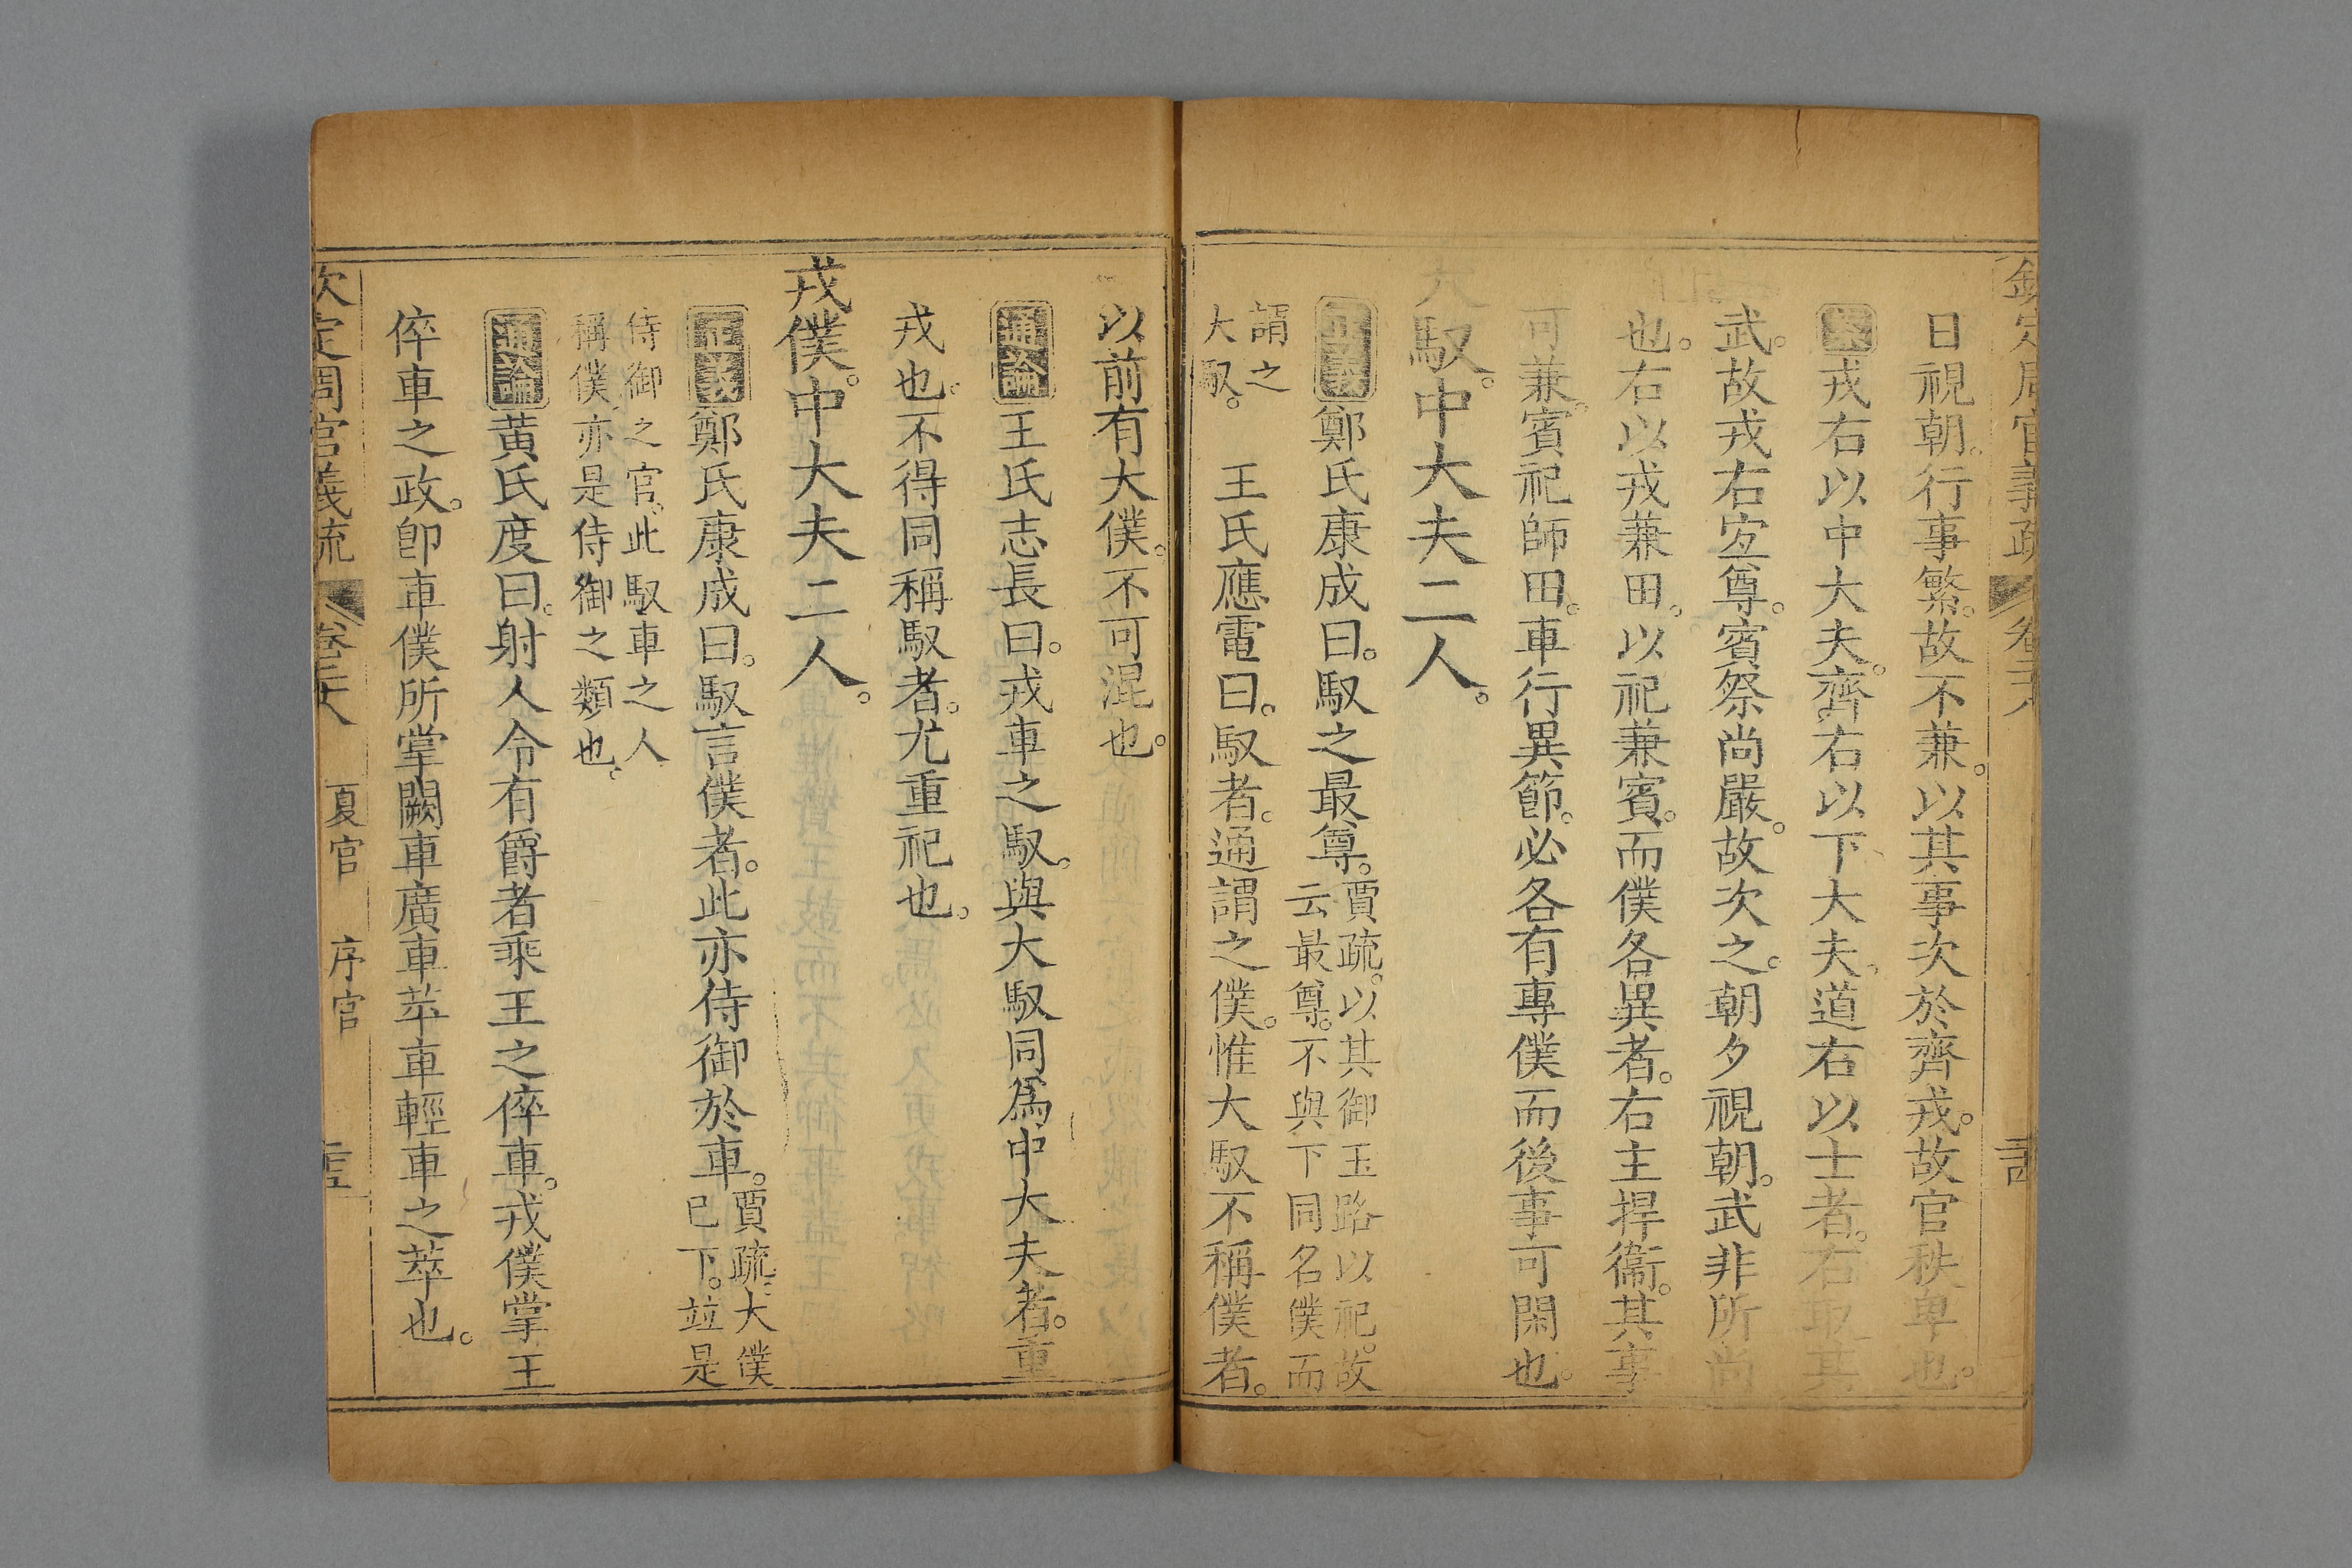 欽定周官義疏 卷二十八
日視朝。行事繁。故不兼。以其事次於齊戎。故官秩卑也。
案戎右以中大夫。齊右以下大夫。道右以士者。右取其
武。故戎右宜尊。賓祭尚嚴。故次之。朝夕視朝。武非所尚
也。右以戎兼田。以祀兼賓。而僕各異者。右主捍衞。其事
可兼。賓祀師田。車行異節。必各有專僕而後事可閑也。
大馭。中大夫二人。
正義鄭氏康成曰。馭之最尊。賈疏。以其御玉路以祀。故云最尊。不與下同名僕而
謂之大馭。 王氏應電曰。馭者。通謂之僕。惟大馭不稱僕者。
以前有大僕。不可混也。
通論王氏志長曰。戎車之馭。與大馭同爲中大夫者。重
戎也。不得同稱馭者。尤重祀也。
戎僕。中大夫二人。
正義鄭氏康成曰。馭言僕者。此亦侍御於車。賈疏。大僕已下。竝是
侍御之官。此馭車之人稱僕。亦是侍御之類也。
通論黃氏度曰。射人令有爵者乘王之倅車。戎僕掌王
倅車之政。卽車僕所掌闕車廣車苹車輕車之萃也。
欽定周官義疏 卷二十八 夏官 序官